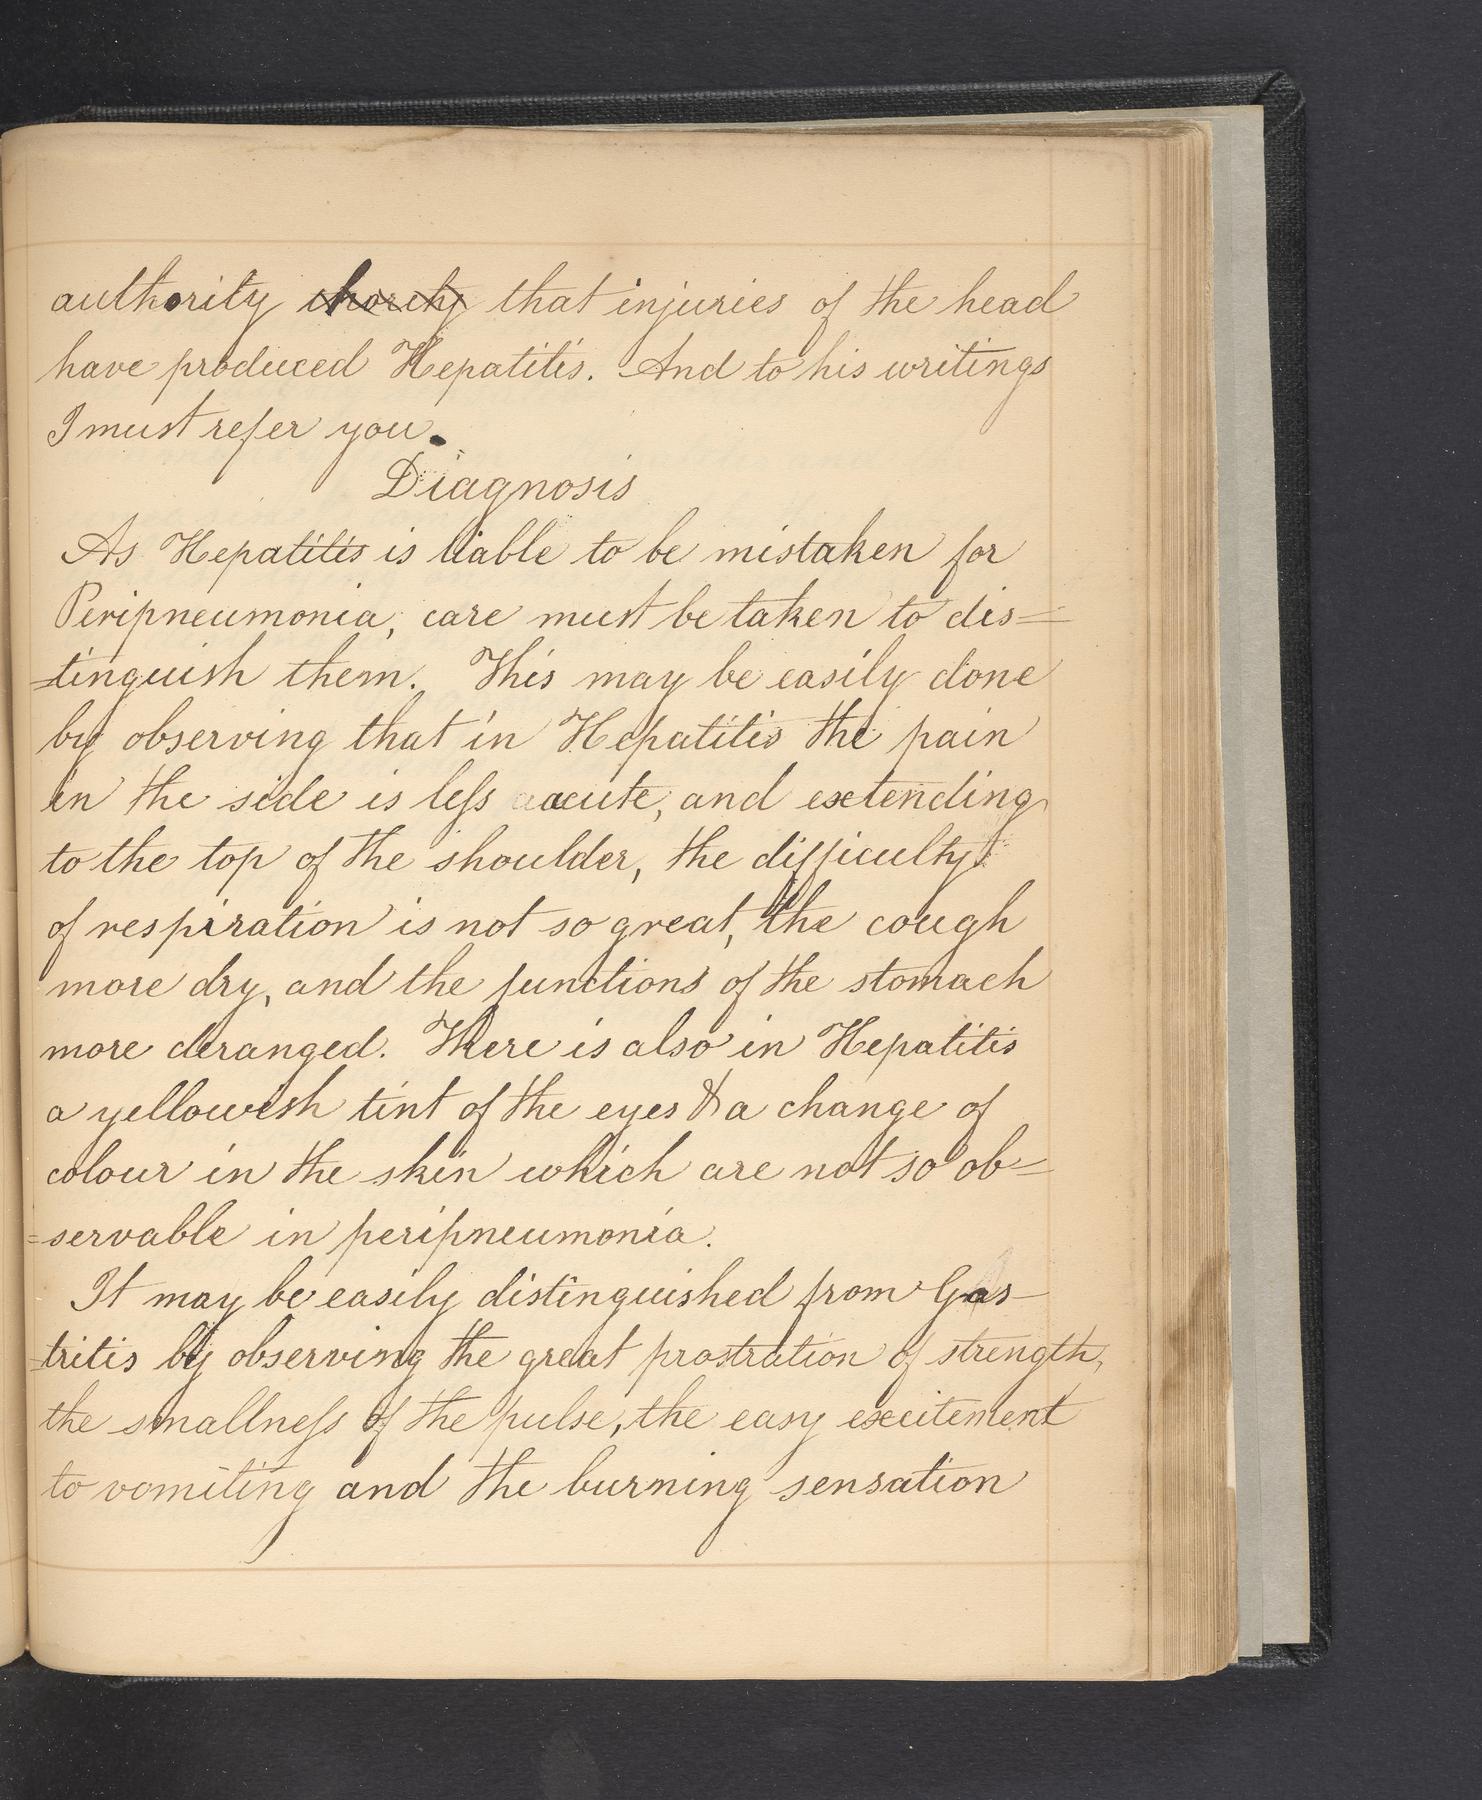 authority thority that injuries of the head
have produced Hepatitis. And to his writings
I must refer you.
Diagnosis
As Hepatitis is liable to be mistaken for
Peripneumonia, care must be taken to dis=
=tinguish them. This may be easily done
by observing that in Hepatitis the pain
in the side is less acute, and extending
to the top of the shoulder, the difficulty
of respiration is not so great, the cough
more dry, and the functions of the stomach
more deranged. There is also in Hepatitis
a yellowish tint of the eyes & a change of
colour in the skin which are not so ob=
=servable in peripneumonia.
It may be easily distinguished from Gas-
=tritis by observing the great prostration of strength,
the smallness of the pulse, the easy excitement
to vomiting and the burning sensation